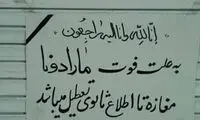 إنا لله وإنا اليه راجعون
به علت فوت مارادونا
مغازه تا اطلاع ثانوی تعطیل میباشد